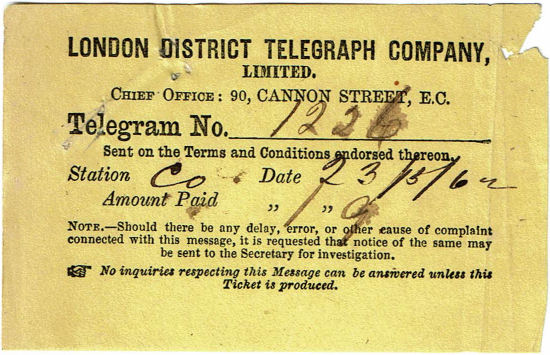 LONDON DISTRICT TELEGRAPH COMPANY,
LIMITED.
CHIEF OFFICE: 90, CANNON STREET, E.C.
Telegram No. 1226
Sent on the Terms and Conditions endorsed thereon.
Station Co Date 23/5/62
Amount Paid „ 1 „ 9
NOTE.—Should there be any delay, error, or other cause of complaint
connected with this message, it is requested that notice of the same may
be sent to the Secretary for investigation.
☞ No inquiries respecting this Message can be answered unless this
Ticket is produced.